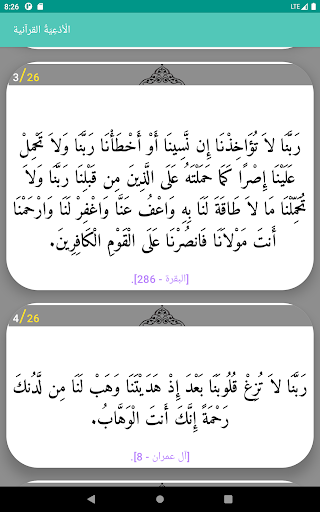 8:26
LTE
الْأَدْعِيَةُ القرآنية
3/26
رَبَّنَا لاَ تُؤَاخِذْنَا إِن نَّسِينَا أَوْ أَخْطَأْنَا رَبَّنَا وَلاَ تَحْمِلْ
عَلَيْنَا إِصْرًا كَمَا حَمَلْتَهُ عَلَى الَّذِينَ مِن قَبْلِنَا رَبَّنَا وَلاَ
تُحَمِّلْنَا مَا لاَ طَاقَةَ لَنَا بِهِ وَاعْفُ عَنَّا وَاغْفِرْ لَنَا وَارْحَمْنَا
أَنتَ مَوْلاَنَا فَانصُرْنَا عَلَى الْقَوْمِ الْكَافِرِينَ.
[البقرة - 286].
4/26
رَبَّنَا لاَ تُزِغْ قُلُوبَنَا بَعْدَ إِذْ هَدَيْتَنَا وَهَبْ لَنَا مِن لَّدُنكَ
رَحْمَةً إِنَّكَ أَنتَ الْوَهَّابُ.
[آل عمران - 8].